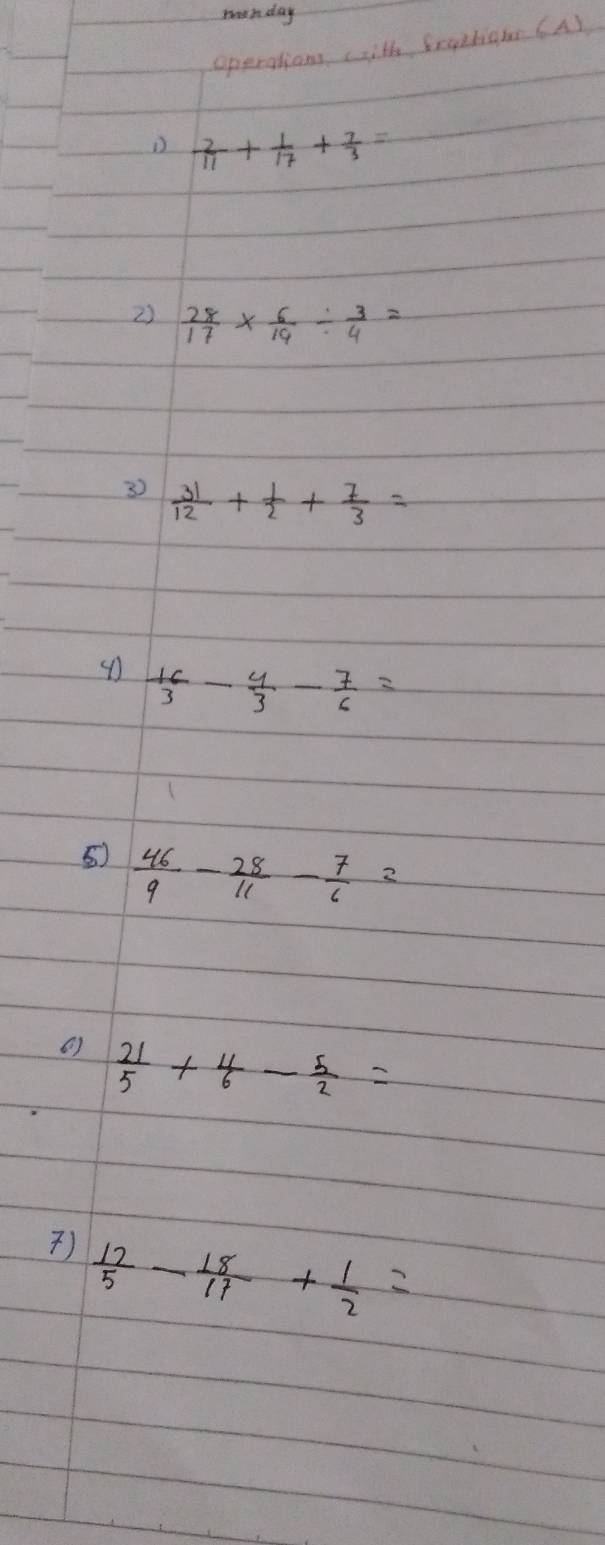 monday
operations with fractions (A)
1) 2/11 + 1/17 + 7/3 =
2) 28/17 × 6/19 ÷ 3/4 =
3) 31/12 + 1/2 + 7/3 =
4) 16/3 - 4/3 - 7/6 =
5) 46/9 - 28/11 - 7/6 =
6) 21/5 + 11/6 - 5/2 =
7) 12/5 - 18/17 + 1/2 =